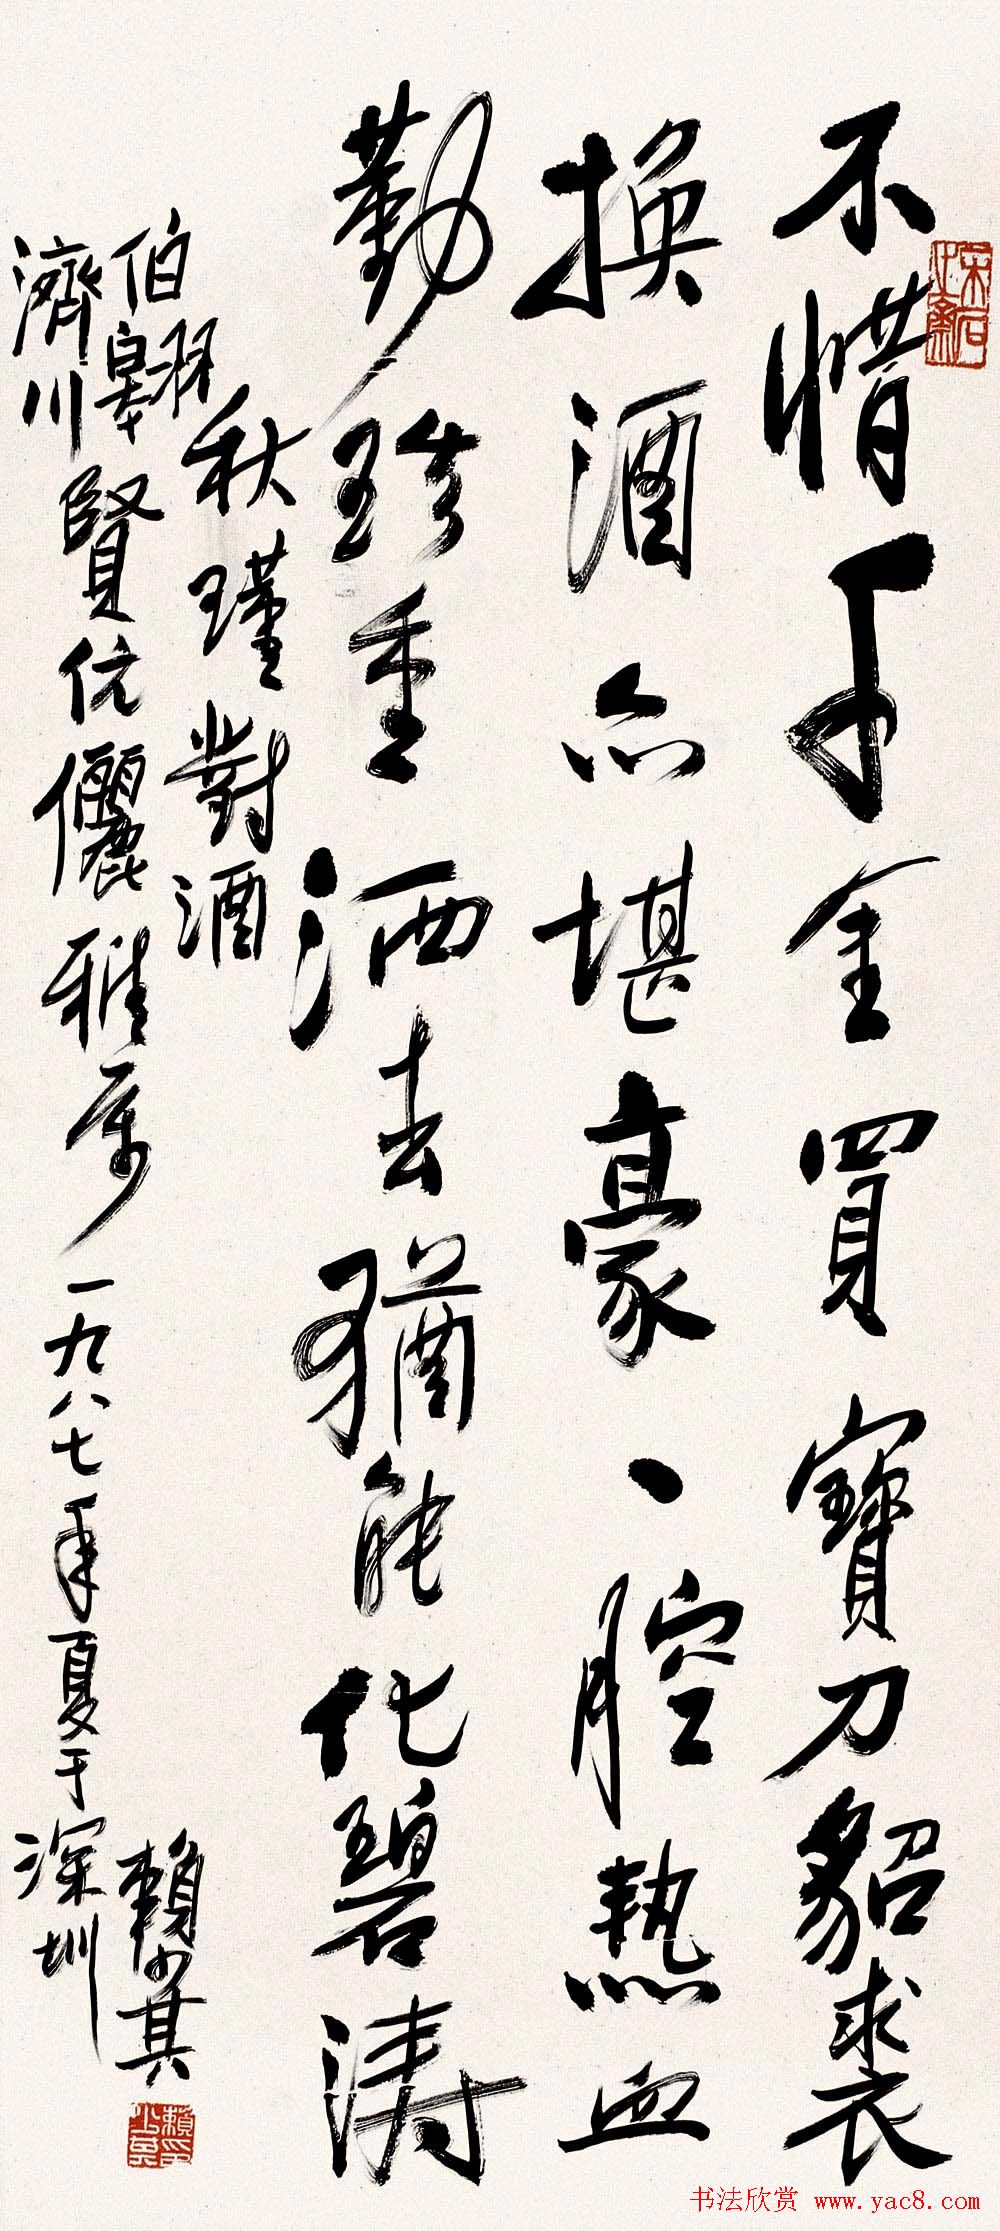 不惜千金買寶刀貂裘
換酒亦堪豪一腔熱血
勤珍重洒去猶能化碧涛
秋瑾對酒
伯翱
濟川
賢伉儷雅屬一九八七年夏于深圳
賴少其
书法欣赏 www.yac8.com